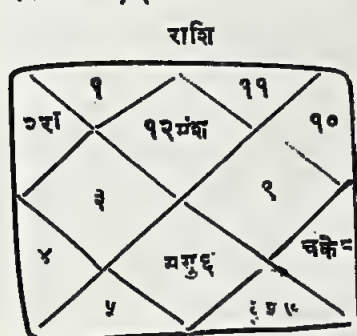 राशि
१ ११
२रा १२मंश १०
३ ९
४ मगु६ चके८
५